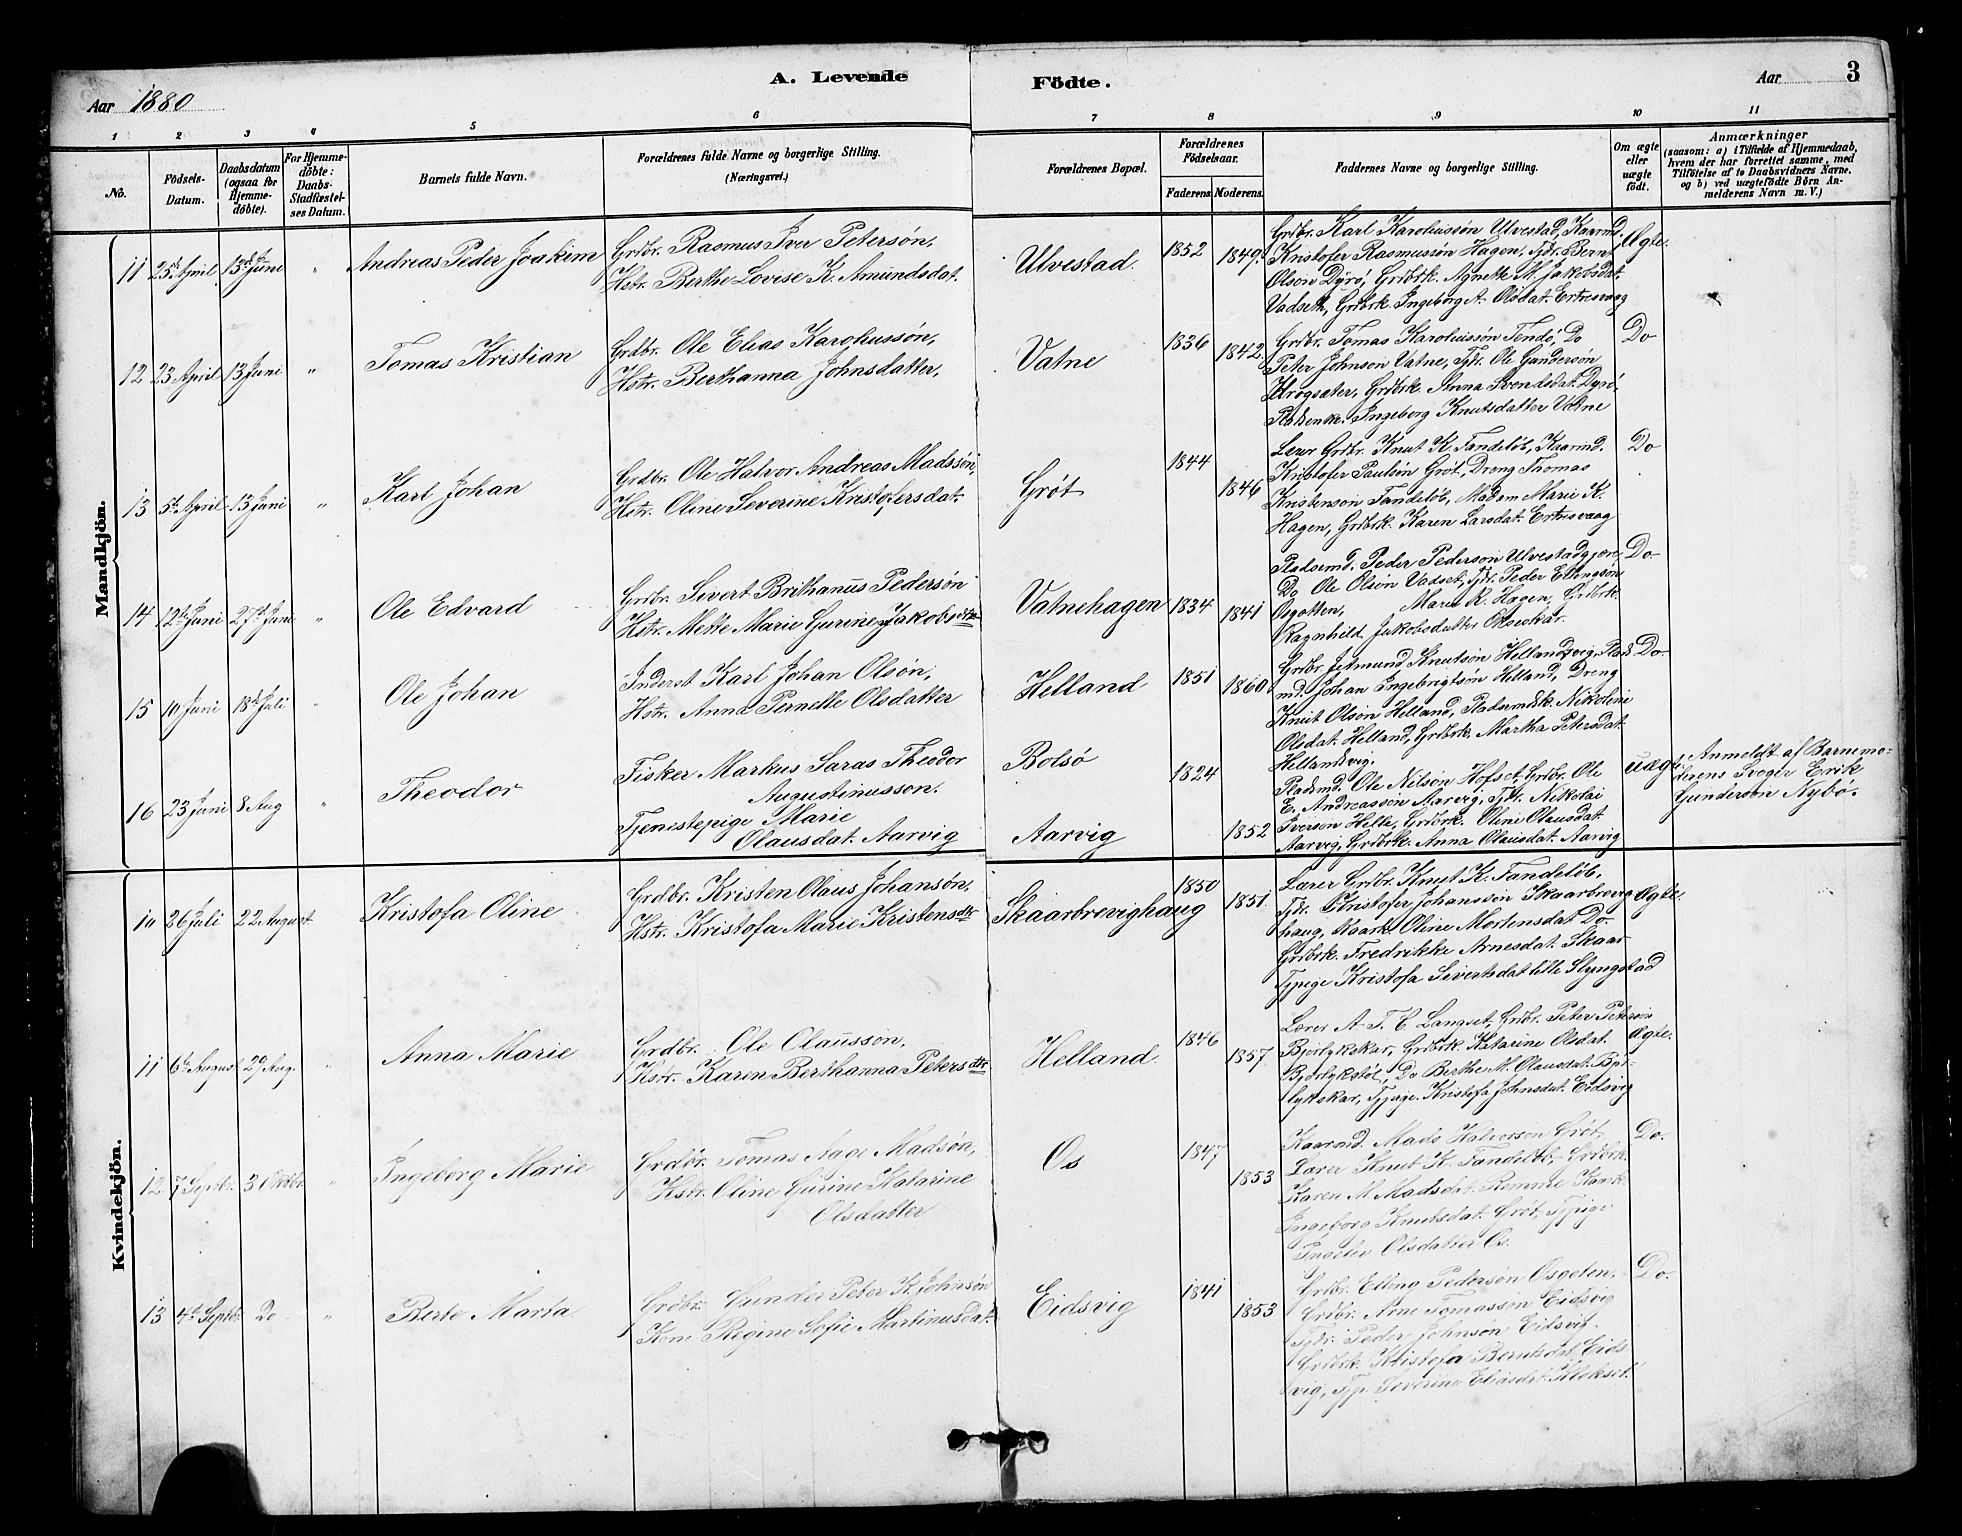 Aar 1880
A. Levende
Födte.
Aar
3
1 2 3 4 5 6 7 8 9 10 11
No.
Födsels-
Datum.
Daabsdatum
(ogsaa for
Hjemme-
döbte).
For Hjemme-
döbte:
Daabs-
Stadfæstel-
ses Datum.
Barnets fulde Navn.
Forældrenes fulde Navne og borgerlige Stilling.
(Næringsvei.)
Forældrenes Bopæl.
Forældrenes
Födselsaar.
Faderens. Moderens.
Faddernes Navne og borgerlige Stilling.
Om ægte
eller
uægte
födt.
Anmærkninger
(saasom: a) i Tilfælde af Hjemmedaab,
hvem der har forrettet samme, med
Tilföielse af to Daabsvidners Navne,
og b) ved uægtefödte Börn An-
melderens Navn m. V.)
Mandkjön.
11 25de April 13de Juni " Andreas Peder Joakim
Grdbr. Rasmus Iver Petersøn,
Hstr. Berthe Lovise K. Amundsdat.
Ulvestad. 1852 1849.
Grdbr. Karl Karoliussøn Ulvestad, Kaarmd.
Kristofer Rasmussøn Hagen, Fdr. Bernt
Olson Dyrø, Grdbrk. Agnette M. Jakobsdat.
Vadseth, Grdbrk. Ingeborg A. Olsdat. Ertresvaag
Ægte.
12 23 April 13 Juni " Tomas Kristian
Grdbr. Ole Elias Karoliussøn,
Hstr. Berthanna Johnsdatter,
Vatne 1836 1842.
Grdbr. Tomas Karoliussøn Tendø, Do
Peter Johnson Vatne, Fdr. Ole Gundersøn
Krogsæter, Grdbrk. Anna Svendsdat. Dyrø,
Ingeborg Knutsdatter Vatne
Do
13 5te April 13 Juni " Karl Johan
Grdbr. Ole Halvor Andreas Madssøn,
Hstr. Oline Severine Kristofersdat.
Grøt 1844 1846
Lærer Grdbr. Knut K. Tandeløb, Kaarmd.
Kristofer Paulsøn Grøt, Dreng Thomas
Kristenson Tandeløb, Madam Marie K.
Hagen, Grdbrk. Karen Larsdat. Ertresvaag
Do
14 12te Juni 27de Juni " Ole Edvard
Grdbr. Sivert Brithanus Pedersøn
Hstr. Mette Marie Gurine Jakobsdtr
Vatnehagen 1834 1841
Pladsmd. Peder Pederson Ulvestadgjøre
Do Ole Olsøn Vadset, Fdr. Peder Ellingsøn
Osgotten, Marie K. Hagen, Grdbrk.
Ragnhild Jakobsdatter Okseskar.
Do-
15 10 Juni 18de Juli " Ole Johan
Inderst Karl Johan Olsøn,
Hstr. Anna Pernelle Olsdatter
Helland 1851 1860
Grdbr. Jetmund Knutsøn Hellandsvig, Plads-
md. Johan Ingebrigtsøn Helland, Dreng
Knut Olsøn Helland, Pladsmdsk. Nikoline
Olsdat. Helland, Grdbrk. Martha Petersdat.
Hellandsvig.
Do-
16 23 Juni 8 Aug " Theodor
Fisker Markus Saras Theodor
Augustinusson.
Tjenestepige Marie
Olausdat. Aarvig
Bolsø
Aarvig
1824 1852
Pladsmd. Ole Nilsøn Hofset, Grdbr. Ole
E. Andreassøn Aarvig, Fdr. Nikolai
Iverson Helle, Grdbrk. Oline Olausdat
Aarvig, Grdbrk. Anna Olausdat. Aarvig
uægte
Anmeldt af Barnemo-
derens Svoger Erik
Gunderson Nybø.
Kvindekjön.
10 26 Juli 22 August. Kristofa Oline
Grdbr. Kristen Olaus Johansøn,
Hstr. Kristofa Marie Kristensdtr
Skaarbrevighaug 1850 1851.
Lærer Grdbr. Knut K. Tandeløb,
Fdr. Kristofer Johanssøn Skaarbrevig
haug, Kaark. Oline Mortensdat Do-
Grdbrk. Fredrikke Arnesdat. Skaar
Tjpige Kristofa Sivertsdat lille Slyngstad
Ægte.
11 6te August 29 Aug. " Anna Marie
Grdbr. Ole Olaussøn,
Hstr. Karen Berthanna Petersdtr
Helland. 1846 1857.
Lærer A. T. E. Langset, Grdbr. Peter Petersøn
Bjørlykskar, Grdbrk. Katarine Olsdat.
Bjørlykstøl, Do Berthe M. Olausdat. Bjør-
lykskar, Tjpige. Kristofa Johnsdat. Eidsvig
Ægte.
12 7 Septbr. 3 Oktbr. " Ingeberg Marie
Grdbr. Tomas Aage Madsøn,
Hstr. Oline Gurine Katarine
Olsdatter
Os 1847 1853
Kaarmd. Mads Halvorson Grøt,
Lærer Knut K. Tandeløb, Grdbrk.
Karen M. Madsdat. Remme Kaark.
Ingeborg Knutsdat. Grøt, Tjpige
Ingeliv Olsdatter Os.
Do.
13 4de Septbr. Do " Berte Marta
Grdbr. Gunder Peter K. Johnsøn
Kone Regine Sofie Martinusdat.
Eidsvig 1841 1853
Grdbr. Elling Pedersøn Osgoten,
Grdbr. Arne Tomassøn Eidsvig
Fdr. Peder Johnsøn Eidsvig.
Grdbrk. Kristofa Berntsdat. Eids
vig, Tjp. Severine Eliasdat. Klokset.
Do.